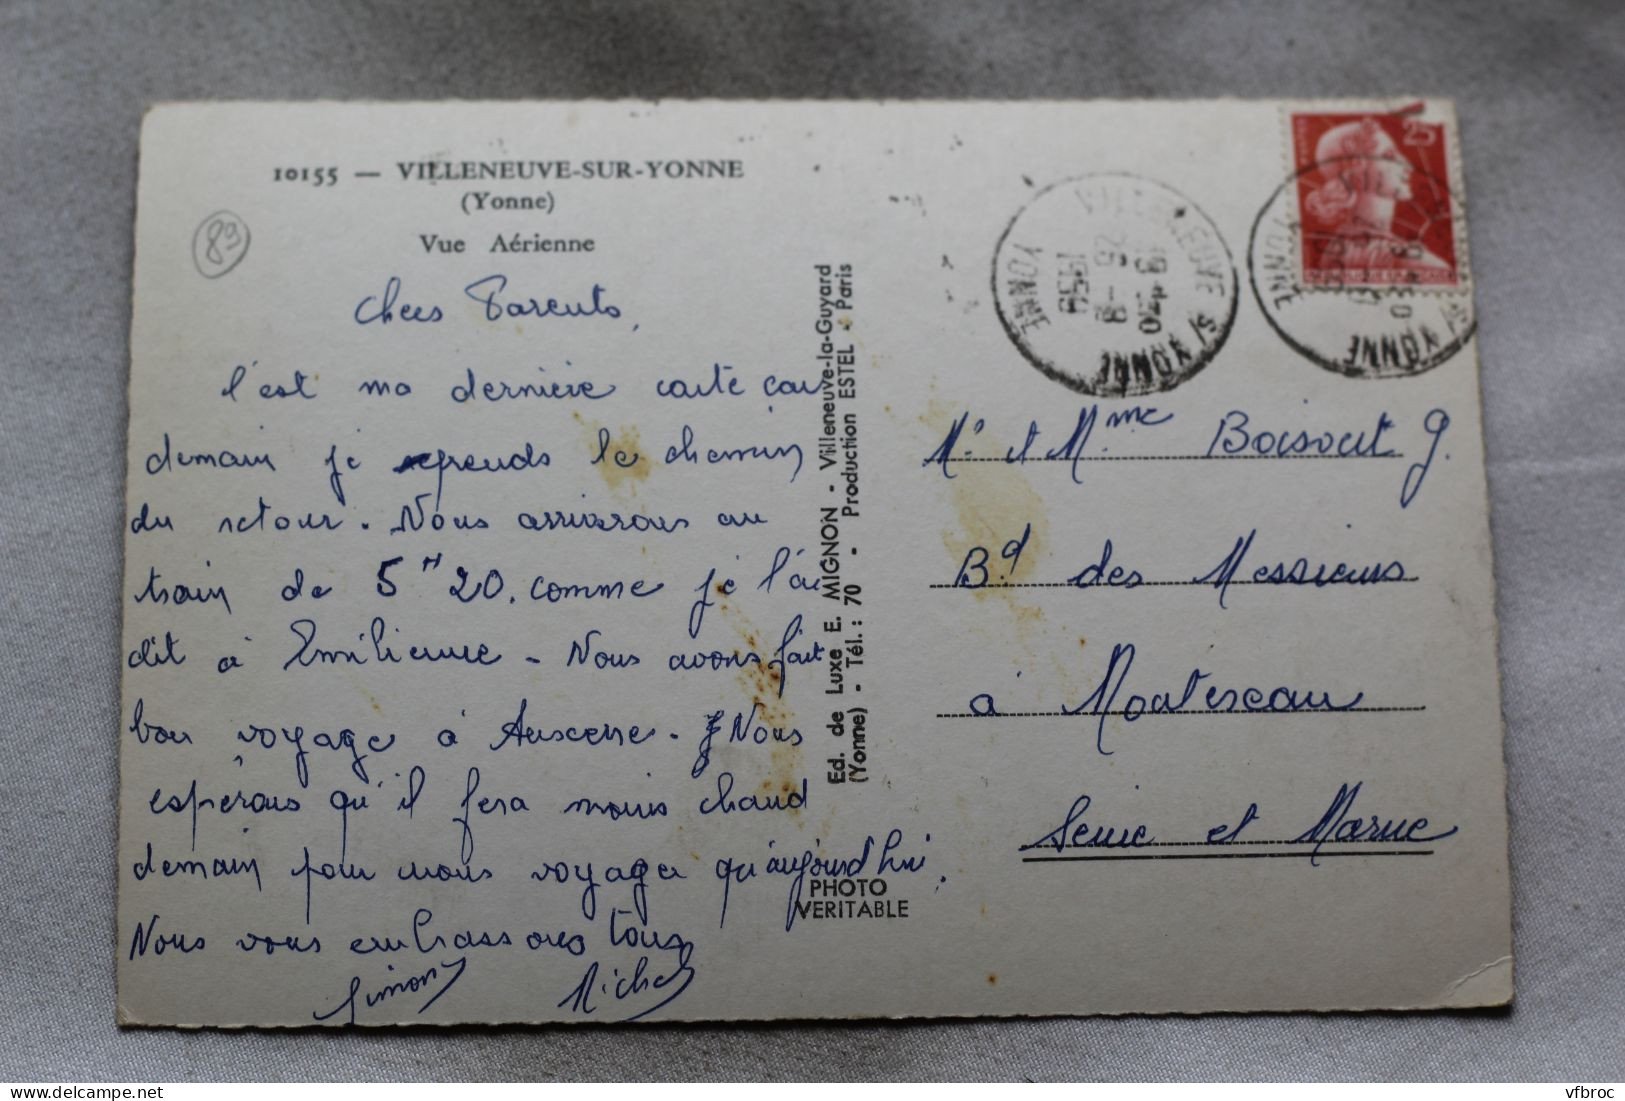 10155 — VILLENEUVE-SUR-YONNE
(Yonne)
Vue Aérienne
89
Chers Parents,
C'est ma dernière carte car
demain je reprends le chemin
du retour. Nous arriverons au
train de 5H20. comme je l'ai
dit à Emilienne - Nous avons fait
bon voyage à Auxerre. Nous
espérons qu'il fera moins chaud
demain pour nous voyager qu'aujourd'hui.
Nous vous embrassons tous
Simon Michel
Ed. de Luxe E. MIGNON - Villeneuve-la-Guyard
(Yonne) - Tél. : 70 - Production ESTEL - Paris
PHOTO
VERITABLE
25
VILLENEUVE S/ YONNE
YONNE
1959
Mr et Mme Boisvert G.
Bd des Messieurs
à Montereau
Seine et Marne
delcampe.net
vfbroc